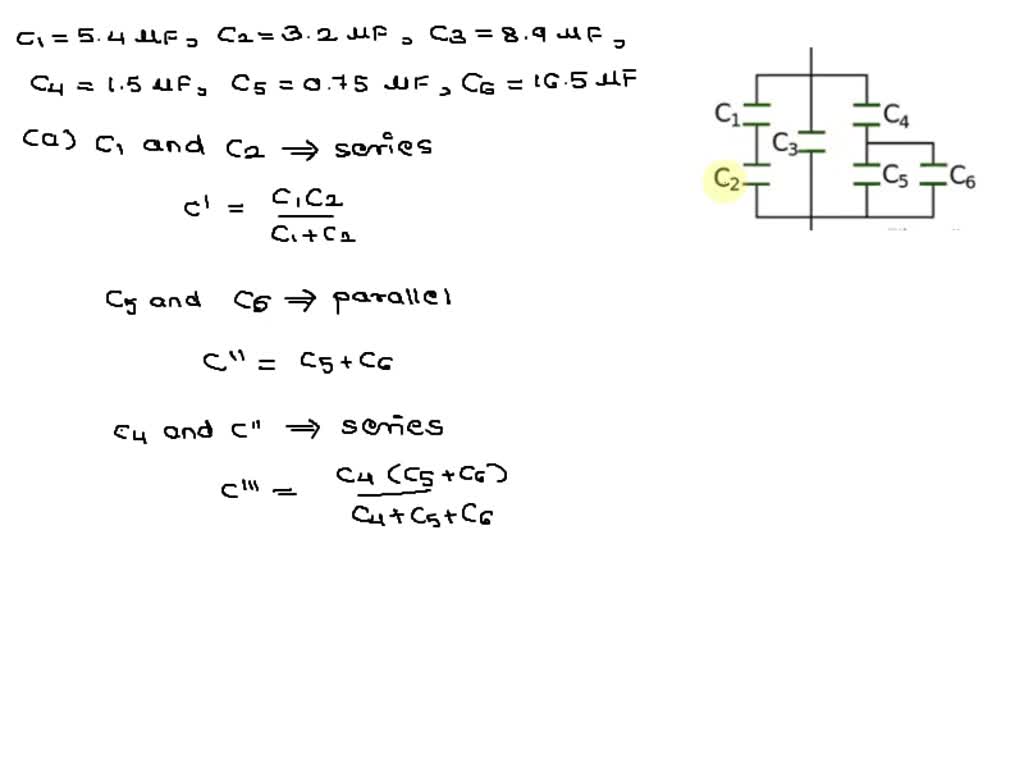 C1 = 5.4 µF, C2 = 3.2 µF, C3 = 8.9 µF,
C4 = 1.5 µF, C5 = 0.75 µF, C6 = 16.5 µF
(a) C1 and C2 ⇒ series
C' = C1C2 / C1+C2
C5 and C6 ⇒ parallel
C'' = C5+C6
C4 and C'' ⇒ series
C''' = C4(C5+C6) / C4+C5+C6
C1
C4
C3
C2
C5
C6